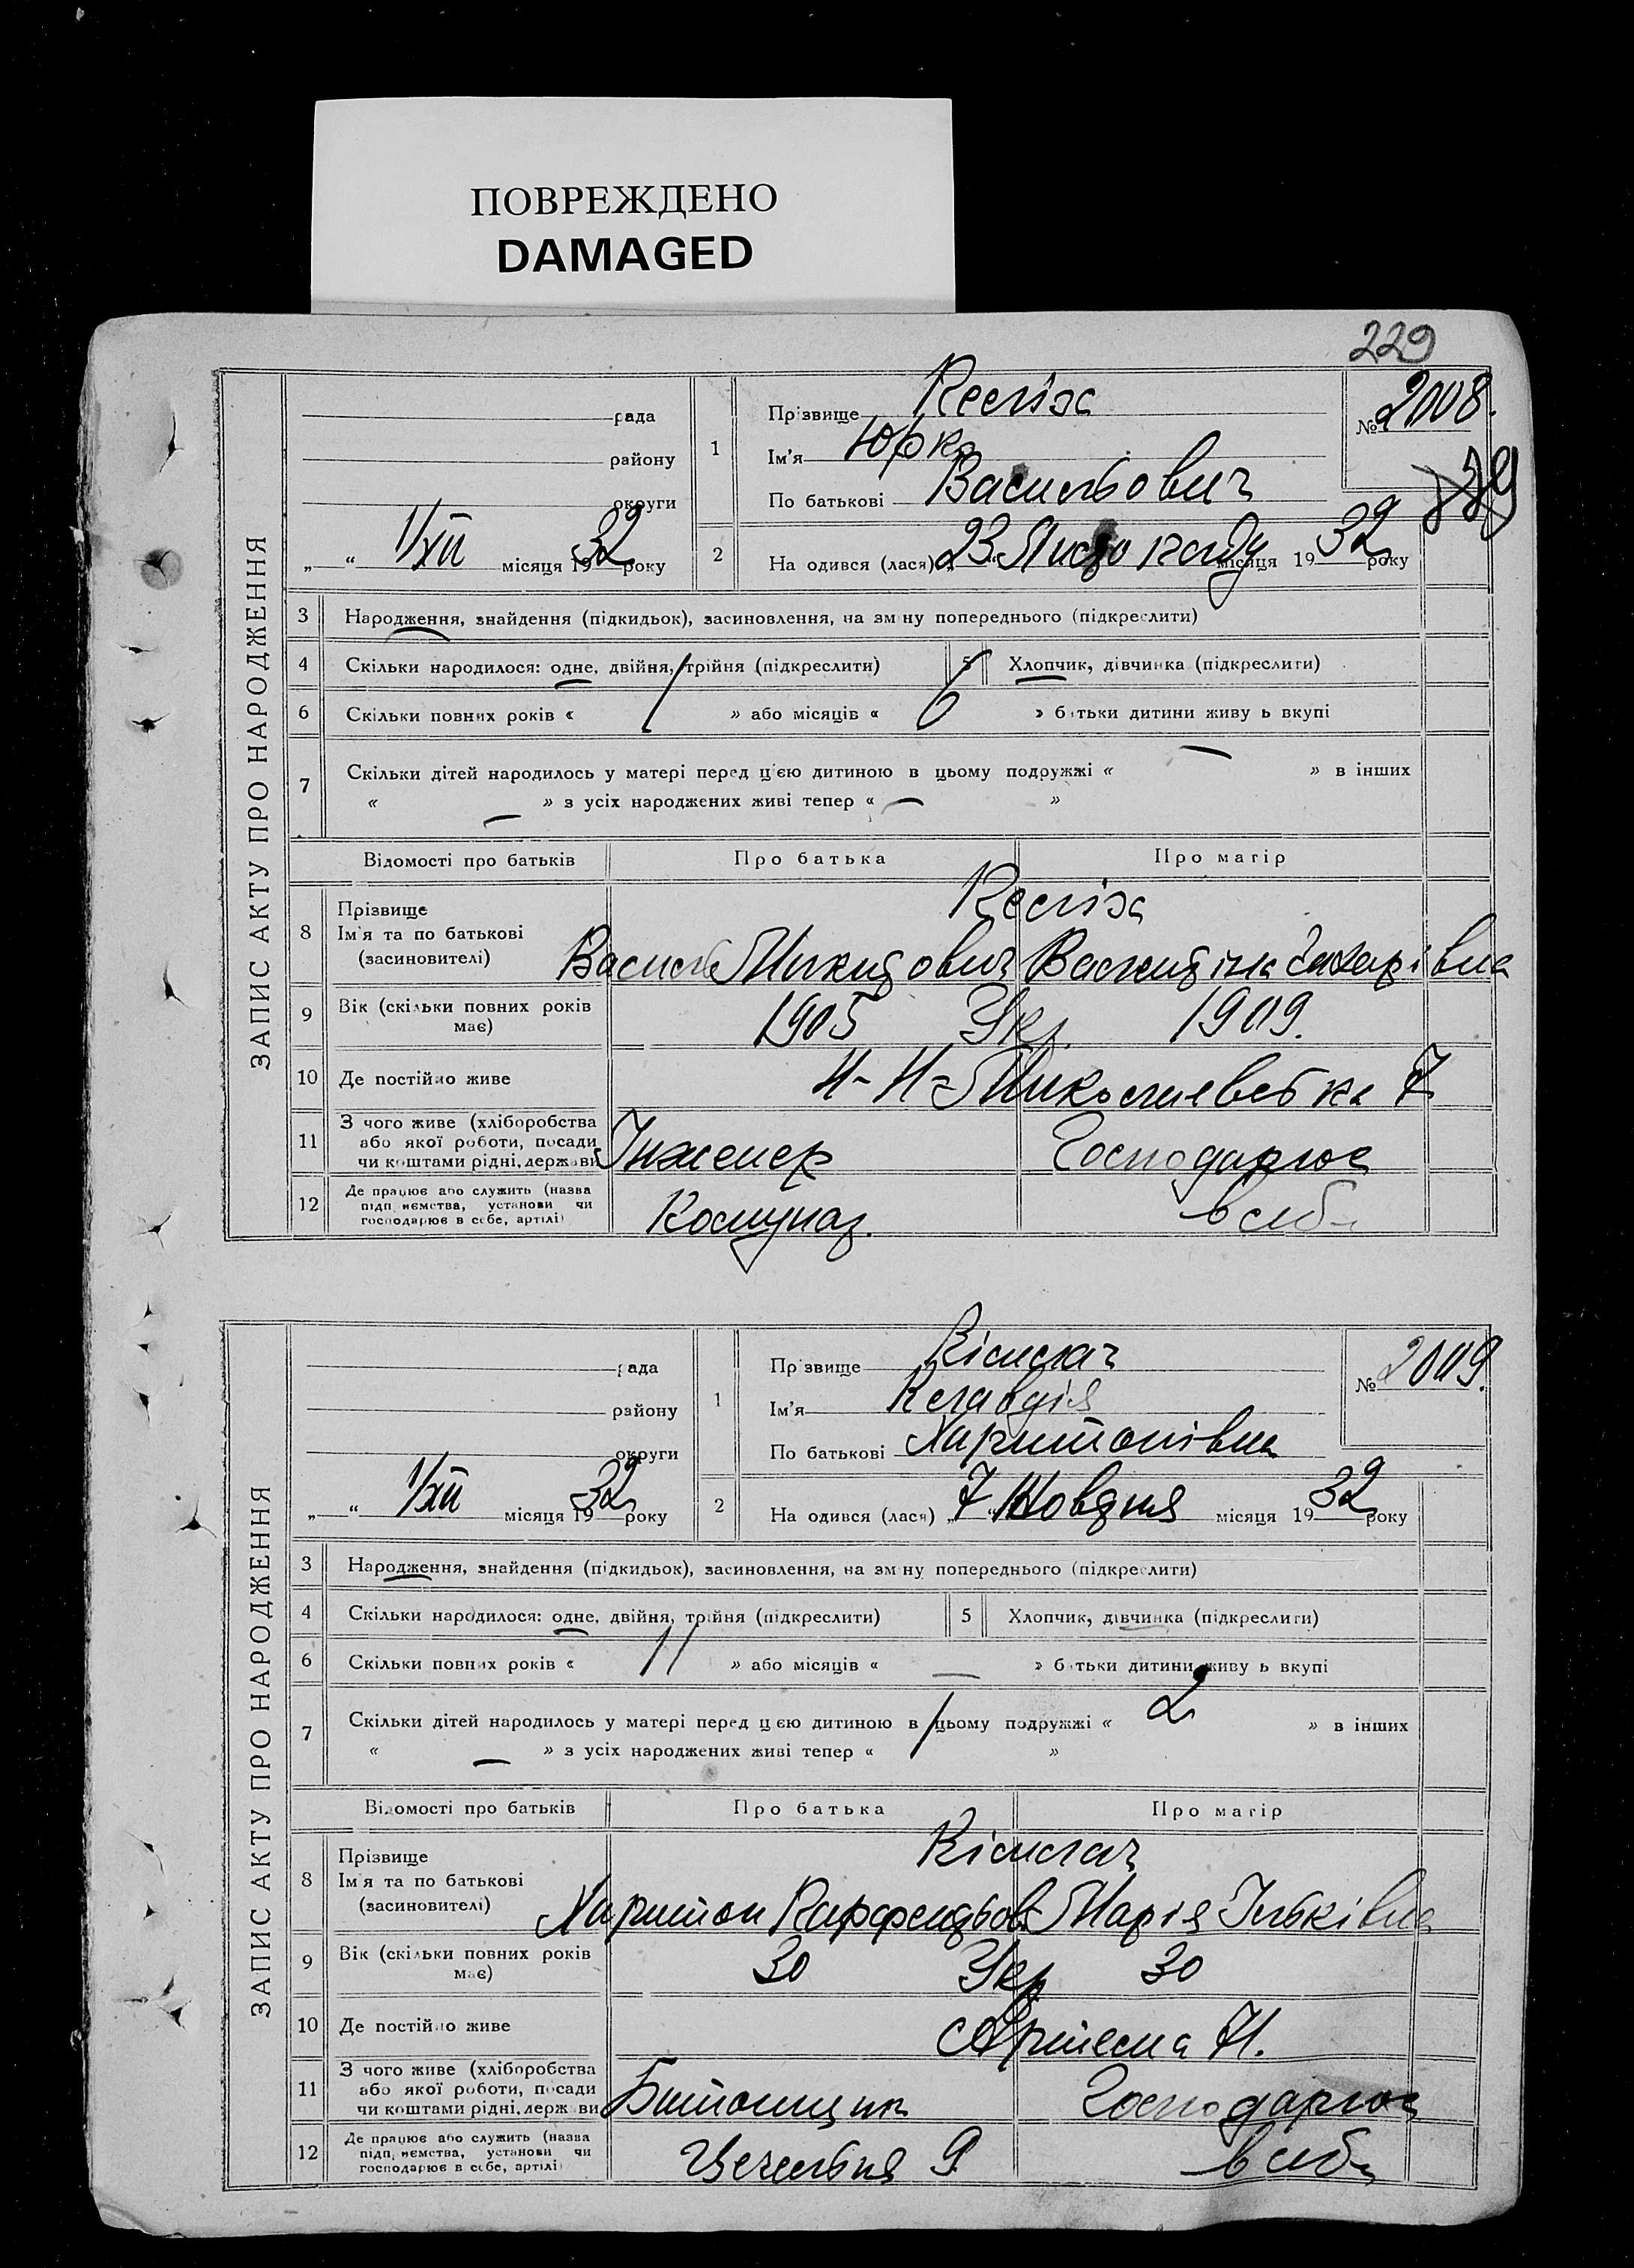 ПОВРЕЖДЕНО
DAMAGED
229
ЗАПИС АКТУ ПРО НАРОДЖЕННЯ
рада
району
округи
„ “ 1/XII місяця 1932 року
1
Прізвище
Ім'я Юрко
По батькові Васильович
№ 2008.
2
Народився (лася) „23“ Листопаду місяця 1932 року
3 Народження, знайдення (підкидьок), засиновлення, на зміну попереднього (підкреслити)
4 Скільки народилося: одне, двійня, трійня (підкреслити)
5 Хлопчик, дівчинка (підкреслити)
6 Скільки повних років « » або місяців « 6 » батьки дитини живуть вкупі
7 Скільки дітей народилось у матері перед цією дитиною в цьому подружжі « — » в інших
« — » з усіх народжених живі тепер « — »
Відомості про батьків
Про батька
Про матір
8 Прізвище
Ім'я та по батькові
(засновителі)
Василь Микитович
9 Вік (скільки повних років
має)
1905 Укр. 1909.
10 Де постійно живе
Н-Миколаевська 7
11 З чого живе (хліборобства
або якої роботи, посади
чи коштами рідні, держави
Інженер
Господарює
12 Де працює або служить (назва
підприємства, установи чи
господарює в себе, артілі)
в себе
ЗАПИС АКТУ ПРО НАРОДЖЕННЯ
рада
району
округи
„ “ 1/XII місяця 1932 року
1
Прізвище
Ім'я Клавдія
По батькові Харитонівна
№ 2009.
2
Народився (лася) „7“ Жовдня місяця 1932 року
3 Народження, знайдення (підкидьок), засиновлення, на зміну попереднього (підкреслити)
4 Скільки народилося: одне, двійня, трійня (підкреслити)
5 Хлопчик, дівчинка (підкреслити)
6 Скільки повних років « 11 » або місяців « — » батьки дитини живуть вкупі
7 Скільки дітей народилось у матері перед цією дитиною в цьому подружжі « 2 » в інших
« — » з усіх народжених живі тепер « 1 »
Відомості про батьків
Про батька
Про матір
8 Прізвище
Ім'я та по батькові
(засновителі)
Харитон Марія Ільківна
9 Вік (скільки повних років
має)
30 Укр 30
10 Де постійно живе
Артема 71.
11 З чого живе (хліборобства
або якої роботи, посади
чи коштами рідні, держави
Бетонщик
Господарює
12 Де працює або служить (назва
підприємства, установи чи
господарює в себе, артілі)
в себе